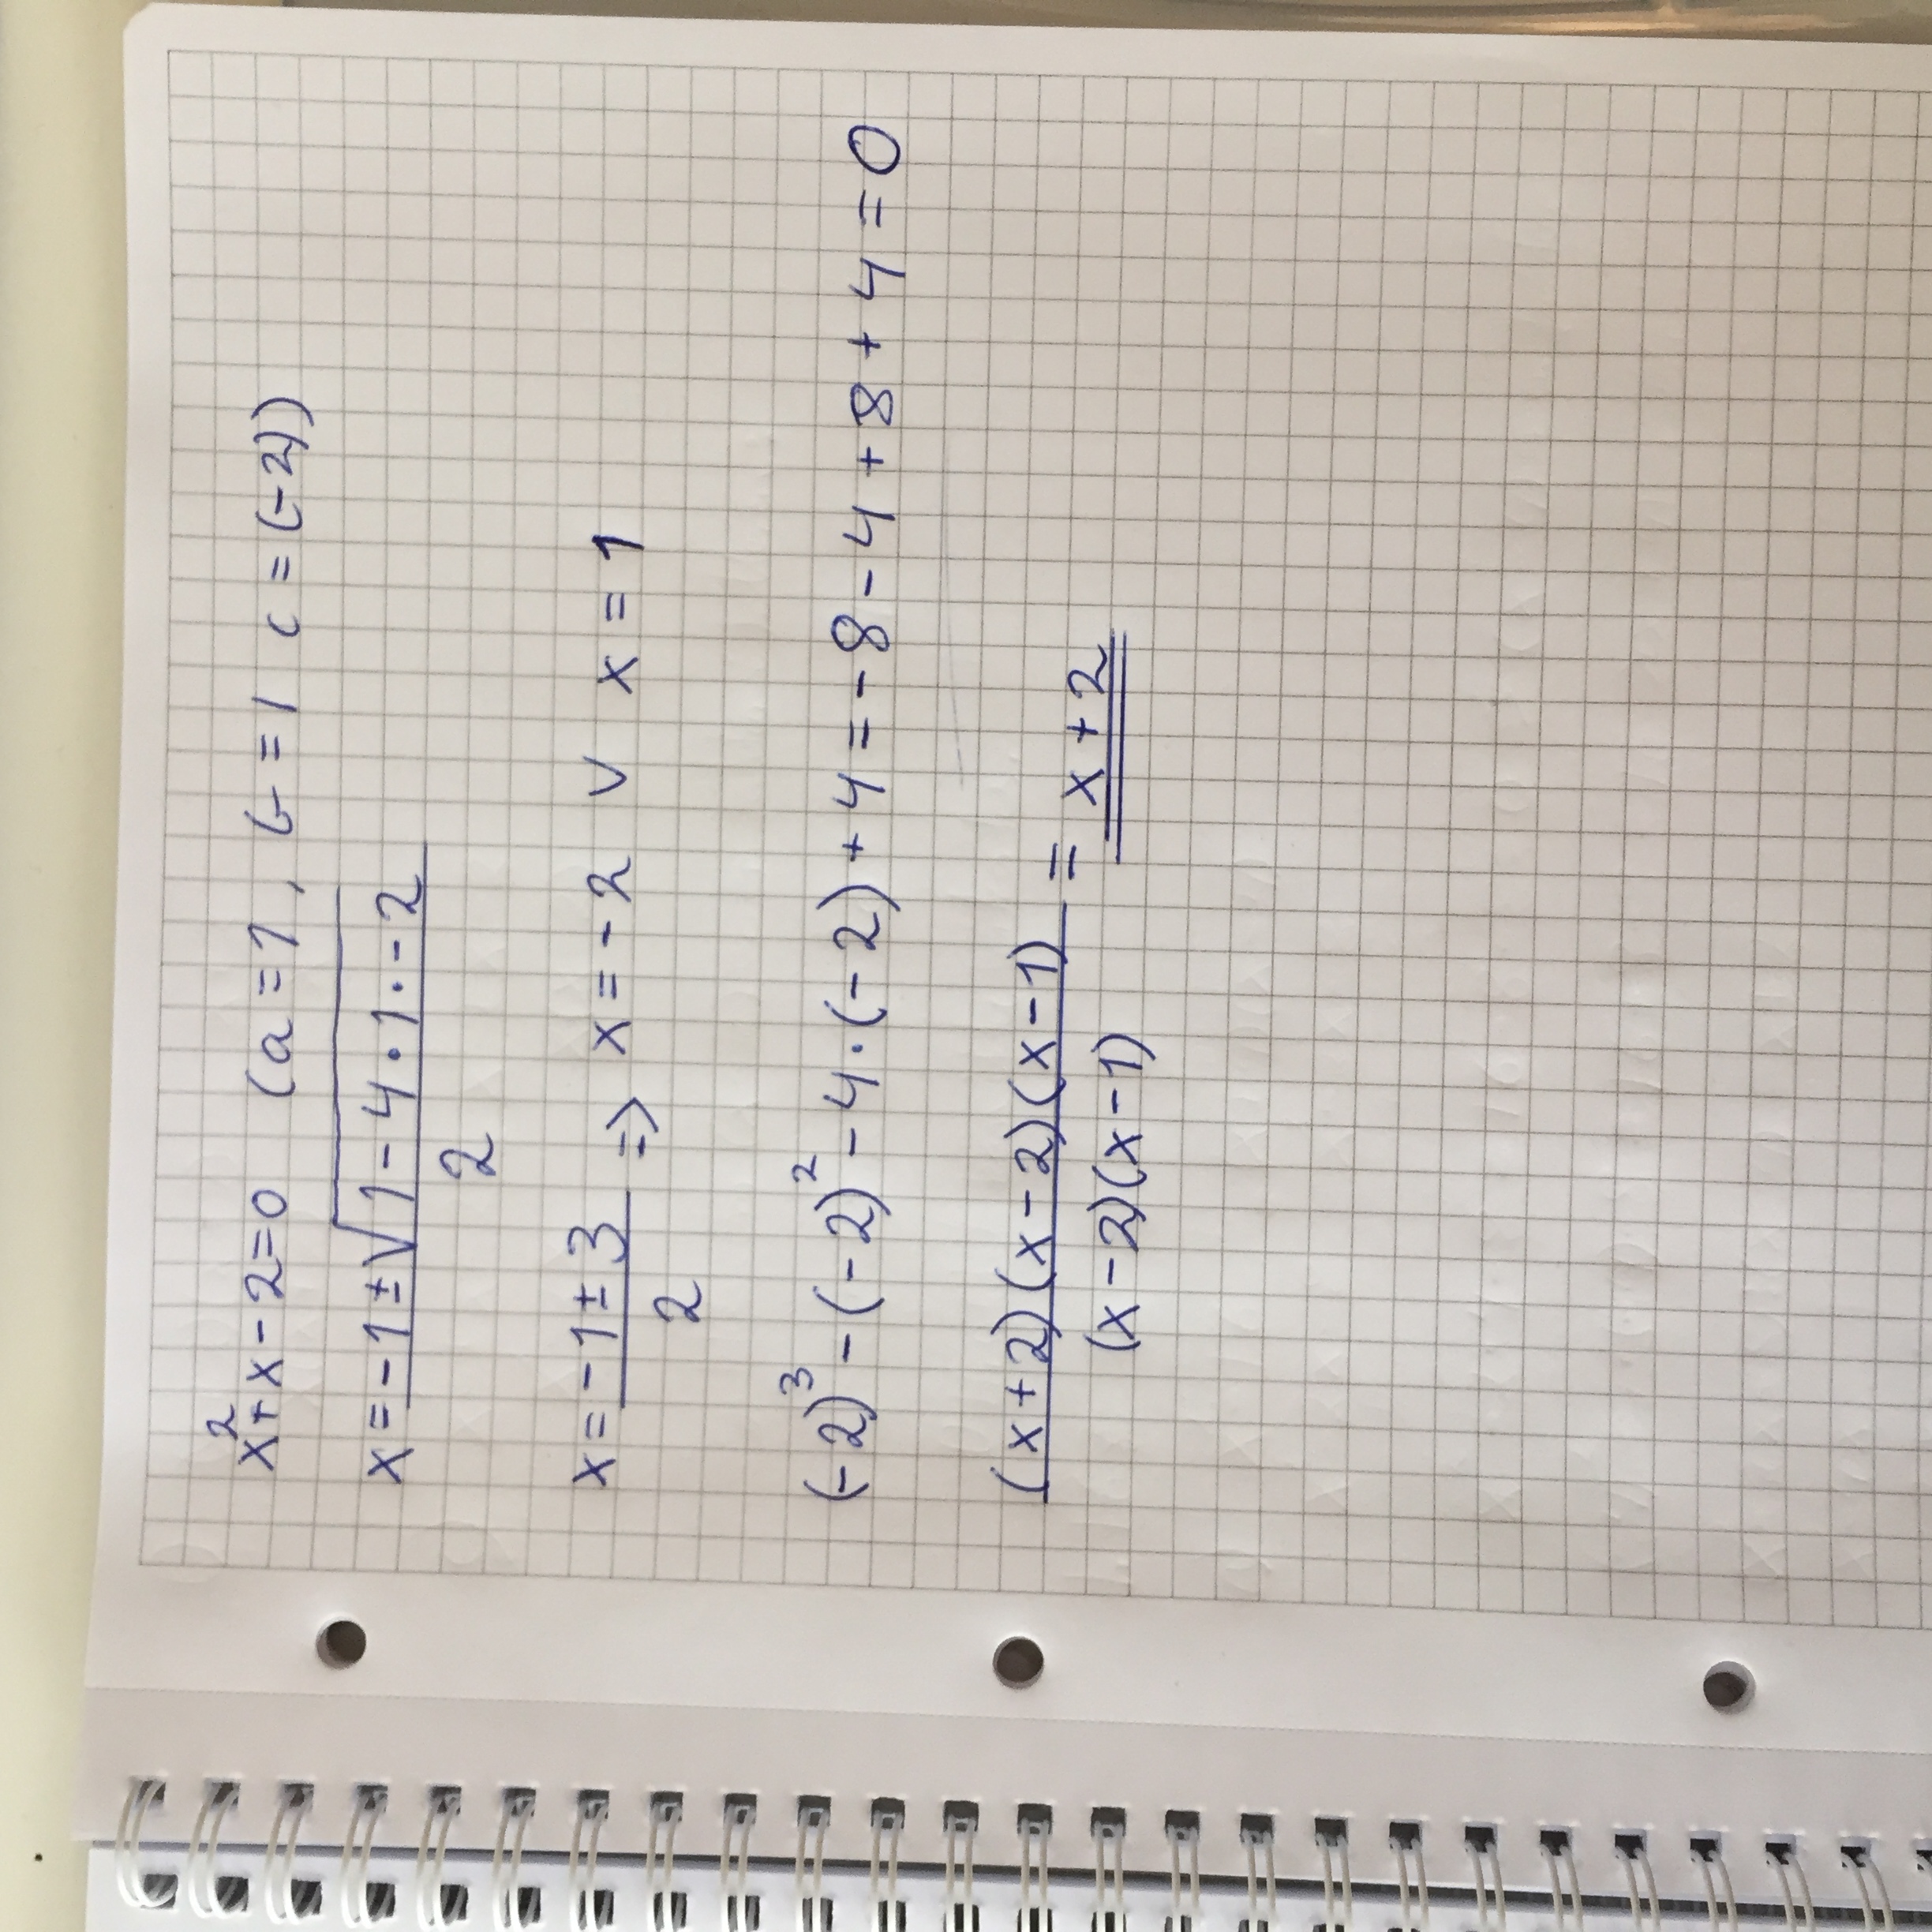 x²+x-2=0 (a=1, b=1 c=(-2))
x=-1±√1-4·1·-2
2
x=-1±3 => x=-2 v x=1
2
(-2)³-(-2)²-4·(-2)+4=-8-4+8+4=0
(x+2)(x-2)(x-1) = x+2
(x-2)(x-1)